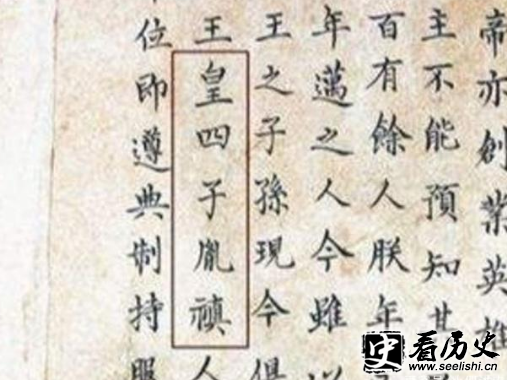 帝亦創業英雄
主不能預知其
百有餘人朕年
年邁之人今雖以
王之子孫現今俱
王皇四子胤禛人
位即遵典制持服
史 看历史
www.seelishi.cn